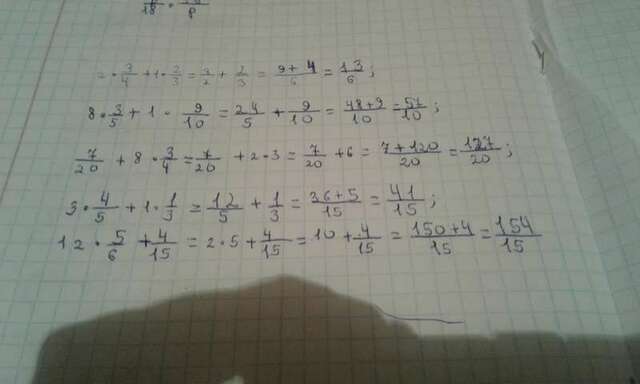 · 3/4 + 1 · 2/3 = 3/2 + 2/3 = 9+4/6 = 13/6 ;
8 · 3/5 + 1 · 9/10 = 24/5 + 9/10 = 48+9/10 = 57/10 ;
7/20 + 8 · 3/4 = 7/20 + 2 · 3 = 7/20 + 6 = 7+120/20 = 127/20 ;
3 · 4/5 + 1 · 1/3 = 12/5 + 1/3 = 36+5/15 = 41/15 ;
12 · 5/6 + 4/15 = 2 · 5 + 4/15 = 10 + 4/15 = 150+4/15 = 154/15